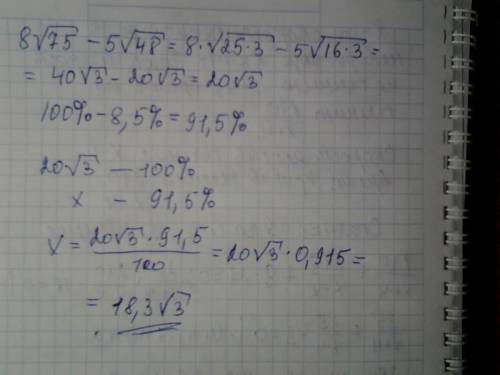 8√75 − 5√48 = 8·√25·3 − 5√16·3 =
= 40√3 − 20√3 = 20√3
100% − 8,5% = 91,5%
20√3 − 100%
x − 91,5%
x = 20√3 · 91,5 / 100 = 20√3 · 0,915 =
= 18,3√3